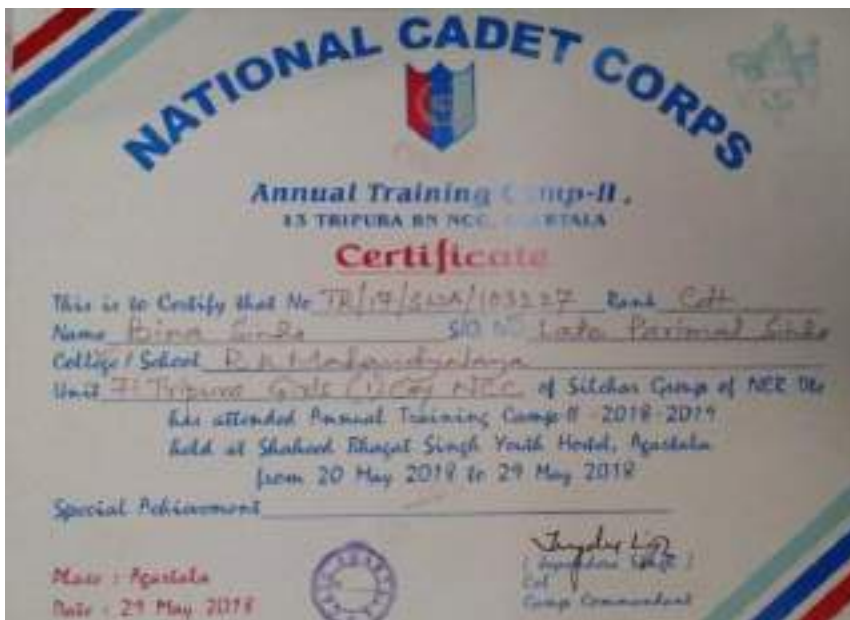 NATIONAL CADET CORPS
Annual Training Camp-II.
13 TRIPURA BN NCC, AGARTALA
Certificate
This is to Certify that No TR/17/SWA/103227 Rank Cdt
Name Bina Sinha S/O D/O Late Parimal Sinha
College / School R.K Mahavidyalaya
Unit Tripura Girls (I) Coy NCC of Silchar Group of NCC
has attended Annual Training Camp-II -2018-2019
held at Shaheed Bhagat Singh Youth Hostel, Agartala
from 20 May 2018 to 29 May 2018
Special Achievement
Place : Agartala
Date : 29 May 2018
Col
Camp Commandant